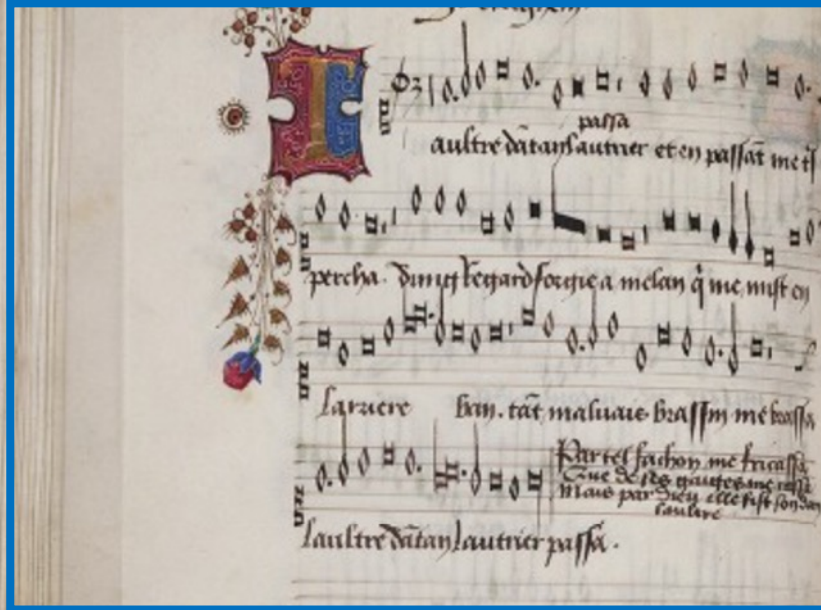 L
passa
aultre dātan lautrier et en passāt me t
percha. dung regard forgie a melan q̄ me mist en
larriere ban. tāt maluais brassin me brassa
Par tel fachon me fricassa
Que de ses gaiges me cassa
Mais par dieu elle fist son dan
laultre
laultre dātan lautrier passa.